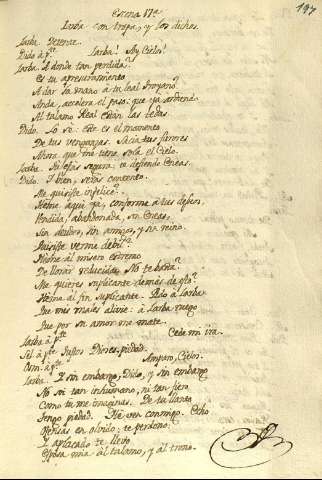 197
Escena 17ª
Iarba con tropa, y los dichos.
Iarba. Detente.
Dido á pte. Iarba! Ay Cielos!
Iarba. A donde tan perdida?
Es tu apresuramiento
A dar la mano á tu leal Troyano?
Anda, accelera el paso: que ya ardiendo
Al talamo Real estan las tedas
Dido. Lo se: este es el momento
De tus venganzas. Sacia tus furores
Ahora que me tiene sola el Cielo.
Iarba. segura: te defiende Eneas.
Dido. Y bien, seras contento.
Me quisiste infelice?
Hasme aqui ya, conforme á tus deseos,
Vendida, abandonada, sin Eneas,
Sin deudos, sin amigos, y sin reino.
Quisiste verme debil?
Hasme al misero extremo
De llorar reducida. No te basta?
Me quieres suplicante demas de esto?
Hasme al fin suplicante. Pido á Iarba
Que mis males alivie: á Iarba ruego
Que por su amor me mate.
Iarba á pte. Cede mi ira.
Sel. á pte. Justos Dioses, piedad.
Osm. á pte. Amparo, Cielos.
Iarba. Y sin embargo, Dido, y sin embargo
No soi tan inhumano, ni tan fiero
Como tu me imaginas. De tu llanto
Tengo piedad. Ve, ven conmigo. Echo
Ofensas en olvido: te perdono:
Y aplacado te llevo
Esposa mia al talamo, y al trono.